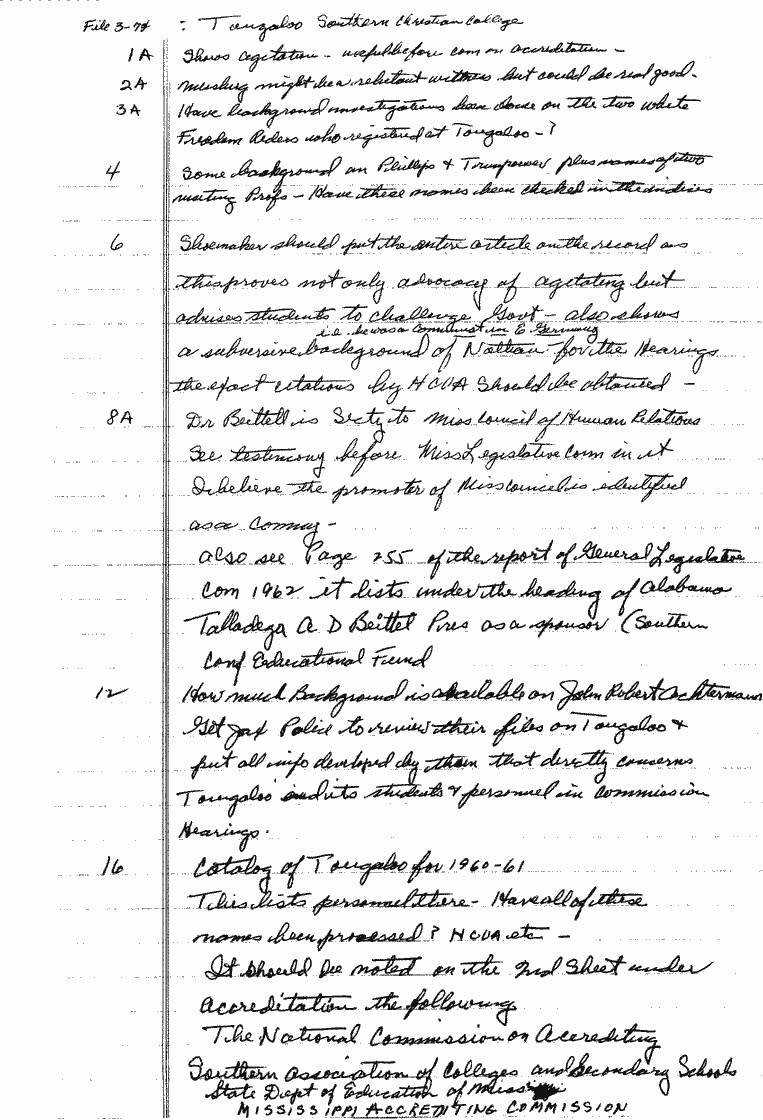 File 3-74 : Tougaloo Southern Christian College
1A Shows agitation - useful before com on accreditation -
2A might be a reluctant witness but could be real good.
3A Have background investigations been done on the two white
Freedom Riders who registered at Tougaloo - ?
4 Some background on Phillips & Trumpower plus names of two
visiting Profs - Have these names been checked in the indices
6 Shoemaker should put the entire article on the record as
this proves not only advocacy of agitating but
advises students to challenge Govt - also shows
i.e. he was a communist in E Germany
a subversive background of Nathan - for the Hearings
the exact citations by HCUA should be obtained -
8A Dr Beittell is Secty to Miss Council of Human Relations
See testimony before Miss Legislative Com in it
I believe the promoter of Miss Council is identified
as a Commy -
also see Page 255 of the report of General Legislative
Com 1962 it lists under the heading of Alabama
Talladega A D Beittel Pres as a sponsor (Southern
Conf Educational Fund
12 How much Background is available on John Robert
Get Jax Police to review their files on Tougaloo &
put all info developed by them that directly concerns
Tougaloo and its students & personnel in Commission
Hearings.
16 Catalog of Tougaloo for 1960-61
This lists personnel there - Have all of these
names been processed? HCUA etc -
It should be noted on the 2nd Sheet under
Accreditation the following
The National Commission on Accrediting
Southern Association of Colleges and Secondary Schools
State Dept of Education of Miss
MISSISSIPPI ACCREDITING COMMISSION